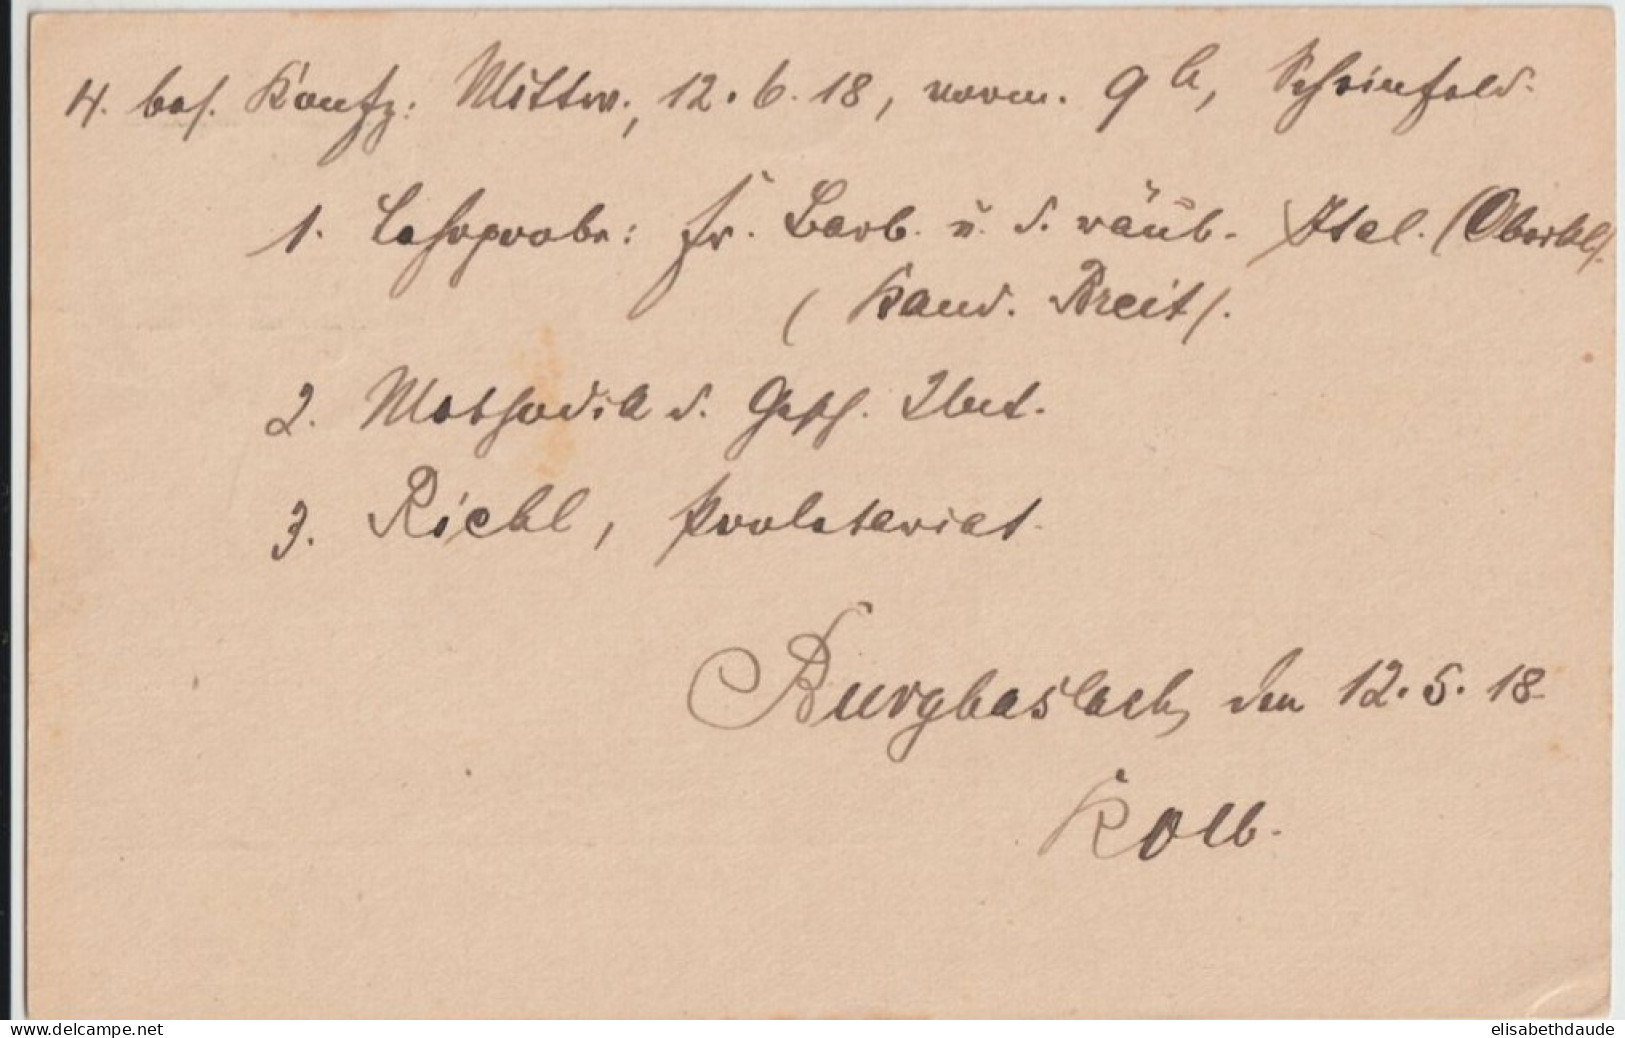 4. bes. Konfz: Mittw., 12.6.18, vorm. 9 h, Scheinfeld.
1. Lehrprobe: Fr. Barb. u. d. räub. Ital. (Oberkl.).
(Kand. Breit).
2. Methodik d. Gesch. Unt.
3. Riehl, Proletariat.
Burghaslach, den 12.5.18
Kolb.
www.delcampe.net
elisabethdaude